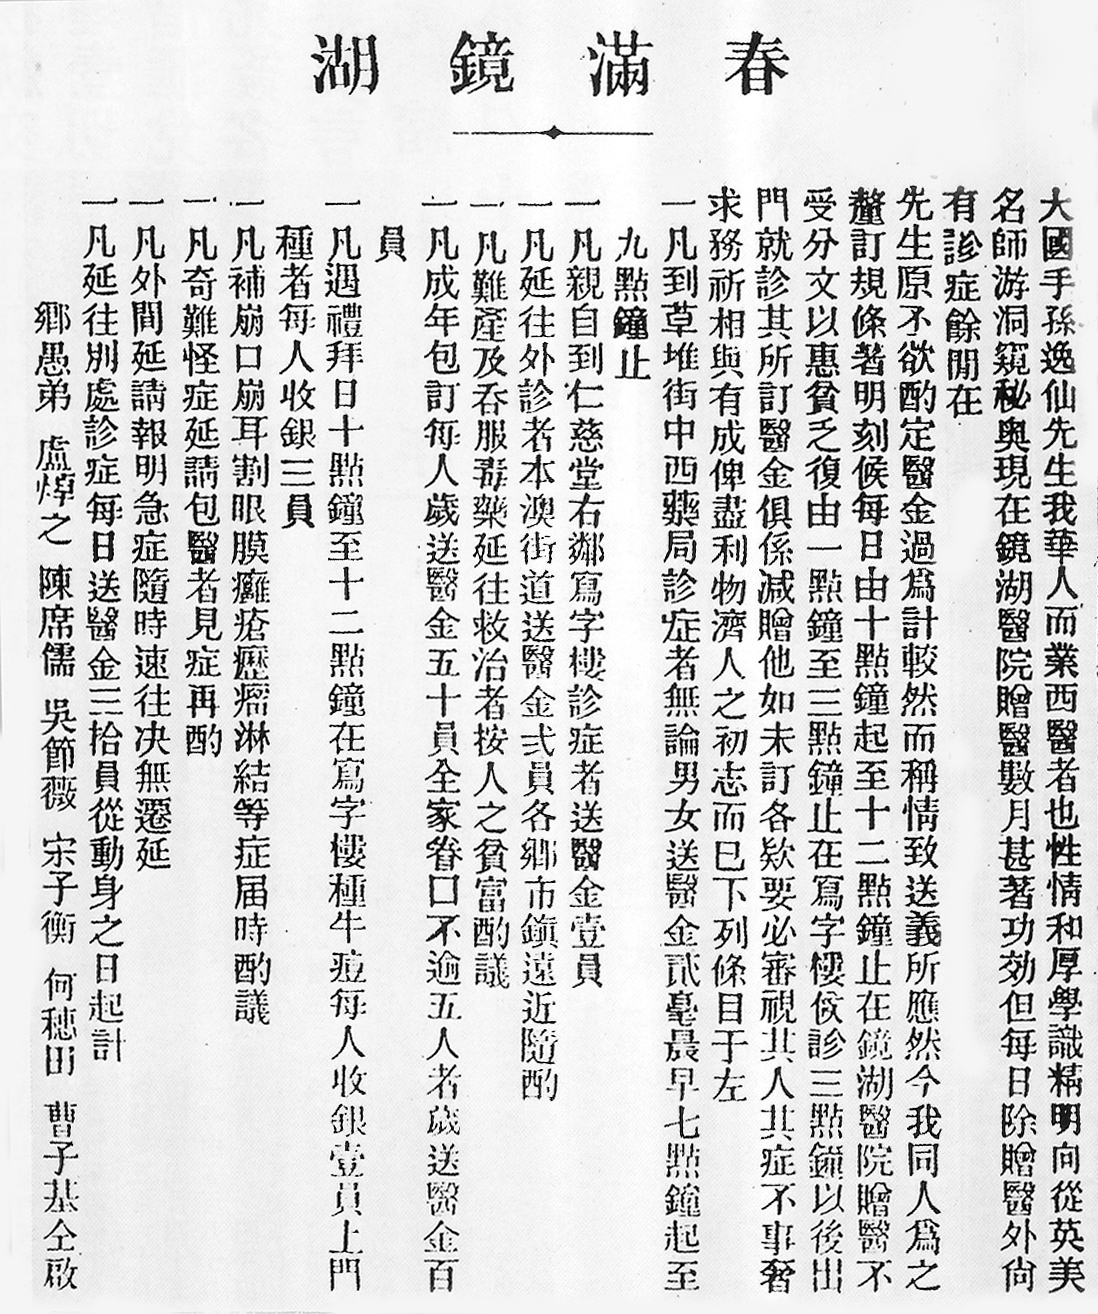 春滿鏡湖
大國手孫逸仙先生我華人而業西醫者也性情和厚學識精明向從英美
名師游洞窺秘奥現在鏡湖醫院贈醫數月甚著功効但每日除贈醫外尙
有診症餘閒在
先生原不欲酌定醫金過爲計較然而稱情致送義所應然今我同人爲之
釐訂規條著明刻候每日由十點鐘起至十二點鐘止在鏡湖醫院贈醫不
受分文以惠貧乏復由一點鐘至三點鐘止在寫字樓候診三點鐘以後出
門就診其所訂醫金俱係减贈他如未訂各欵要必審視其人其症不事奢
求務祈相與有成俾盡利物濟人之初志而已下列條目于左
一凡到草堆街中西藥局診症者無論男女送醫金貳毫晨早七點鐘起至
九點鐘止
一凡親自到仁慈堂右鄰寫字樓診症者送醫金壹員
一凡延往外診者本澳街道送醫金弍員各鄉市鎭遠近隨酌
一凡難產及吞服毒藥延往救治者按人之貧富酌議
一凡成年包訂每人歲送醫金五十員全家眷口不逾五人者歲送醫金百
員
一凡遇禮拜日十點鐘至十二點鐘在寫字樓種牛痘每人收銀壹員上門
種者每人收銀三員
一凡補崩口崩耳割眼膜癰瘡癧瘤淋結等症届時酌議
一凡奇難怪症延請包醫者見症再酌
一凡外間延請報明急症隨時速往决無遷延
一凡延往別處診症每日送醫金三拾員從動身之日起計
鄉愚弟 盧焯之 陳席儒 吳節薇 宋子衡 何穗田 曹子基仝啟